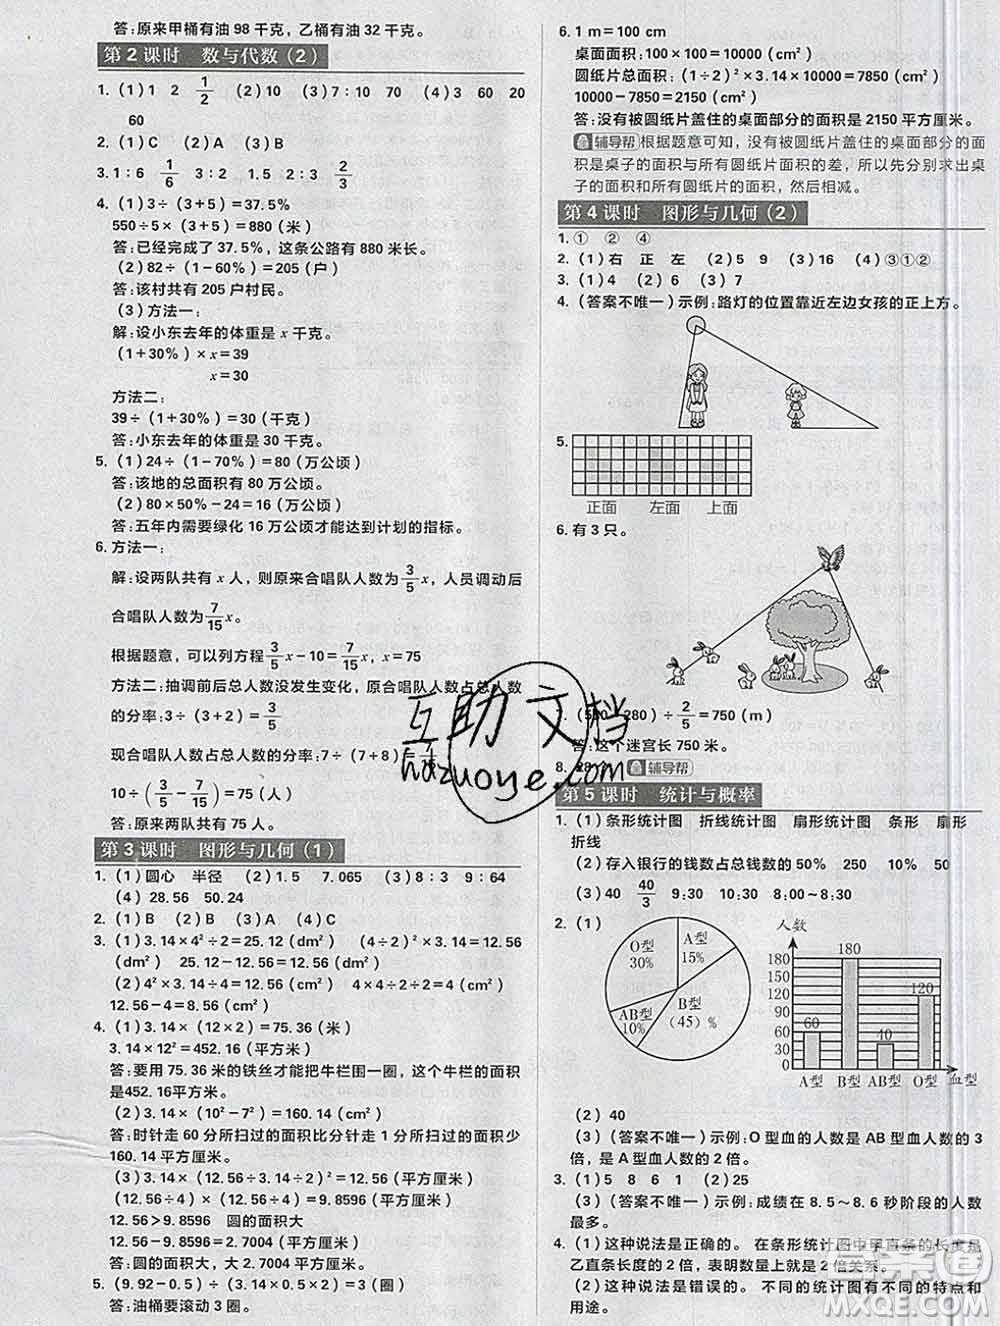 答:原来甲桶有油 98 千克,乙桶有油 32 千克。
第 2 课时 数与代数(2)
1. (1)1 2 1/2 (2)10 (3)7:10 70 (4)3 60 20
60
2. (1)C (2)A (3)B
3. 1:6 1/6 3:2 1.5 2:3 2/3
4. (1)3÷(3+5)=37.5%
550÷5×(3+5)=880(米)
答:已经完成了 37.5%,这条公路有 880 米长。
(2)82÷(1-60%)=205(户)
答:该村共有 205 户村民。
(3)方法一:
解:设小东去年的体重是 x 千克。
(1+30%)×x=39
x=30
方法二:
39÷(1+30%)=30(千克)
答:小东去年的体重是 30 千克。
5. (1)24÷(1-70%)=80(万公顷)
答:该地的总面积有 80 万公顷。
(2)80×50%-24=16(万公顷)
答:五年内需要绿化 16 万公顷才能达到计划的指标。
6. 方法一:
解:设两队共有 x 人,则原来合唱队人数为 3/5 x,人员调动后
合唱队人数为 7/15 x。
根据题意,可以列方程 3/5 x-10=7/15 x,x=75
方法二:抽调前后总人数没发生变化,原合唱队人数占总人数
的分率:3÷(3+2)=3/5
现合唱队人数占总人数的分率:7÷(7+8)=
10÷(3/5-7/15)=75(人)
答:原来两队共有 75 人。
第 3 课时 图形与几何(1)
1. (1)圆心 半径 (2)1.5 7.065 (3)8:3 9:64
(4)28.56 50.24
2. (1)B (2)B (3)A (4)C
3. (1)3.14×4²÷2=25.12(dm²) (4÷2)²×3.14=12.56
(dm²) 25.12-12.56=12.56(dm²)
(2)(4÷2)²×3.14=12.56(cm²) 4×4÷2=4(cm²)
12.56-4=8.56(cm²)
4. (1)3.14×(12×2)=75.36(米)
3.14×12²=452.16(平方米)
答:要用 75.36 米的铁丝才能把牛栏围一圈,这个牛栏的面积
是452.16平方米。
(2)3.14×(10²-7²)=160.14(cm²)
答:时针走 60 分所扫过的面积比分针走 1 分所扫过的面积少
160.14 平方厘米。
(3)3.14×(12.56÷3.14÷2)²=12.56(平方米)
(4)3.14×(12.56÷4)=9.8596(平方米)
12.56>9.8596 圆的面积大
12.56-9.8596=2.7004(平方米)
答:圆的面积大,大 2.7004 平方米。
5. (9.92-0.5)÷(3.14×1)=3(圈)
答:油桶要滚动 3 圈。
6. 1 m=100 cm
桌面面积:100×100=10000(cm²)
圆纸片总面积:(1÷2)²×3.14×10000=7850(cm²)
10000-7850=2150(cm²)
答:没有被圆纸片盖住的桌面部分的面积是 2150 平方厘米。
辅导帮 根据题意可知,没有被圆纸片盖住的桌面部分的面
积是桌子的面积与所有圆纸片面积的差,所以先分别求出桌
子的面积和所有圆纸片的面积,然后相减。
第 4 课时 图形与几何(2)
1. ① ② ④
2. (1)右 正 左 (2)5 9 (3)16 (4)③①②
3. (1)4 (2)6 (3)7
4. (答案不唯一)示例:路灯的位置靠近左边女孩的正上方。
5.
正面 左面 上面
6. 有 3 只。
7. (580-280)÷2/5=750(m)
答:这个迷宫长 750 米。
8. 辅导帮
第 5 课时 统计与概率
1. (1)条形统计图 折线统计图 扇形统计图 条形 扇形
折线
(2)存入银行的钱数占总钱数的 50% 250 10% 50
(3)40 40/3 9:30 9:10 8:00~8:30
2. (1)
O型 30%
A型 15%
B型 (45)%
AB型 10%
人数
180
150
120
90
60
30
0
60 180 40 120
A型 B型 AB型 O型 血型
(2)40
(3)(答案不唯一)示例:O 型血的人数是 AB 型人数的 3
倍,是 A 型人数的 2 倍。
3. (1)5 8 6 1 (2)25
(3)(答案不唯一)示例:成绩在 8.5~8.6 秒阶段的人数
最多。
4. (1)这种说法是正确的。 在条形统计图中甲直条的长度是
乙直条的长度的 2 倍,表明数量上就是 2 倍关系。
(2)这种说法是错误的。 不同的统计图有不同的特点和
用途。
互助文档
hdzuoye.com
答案圈
MXQE.COM